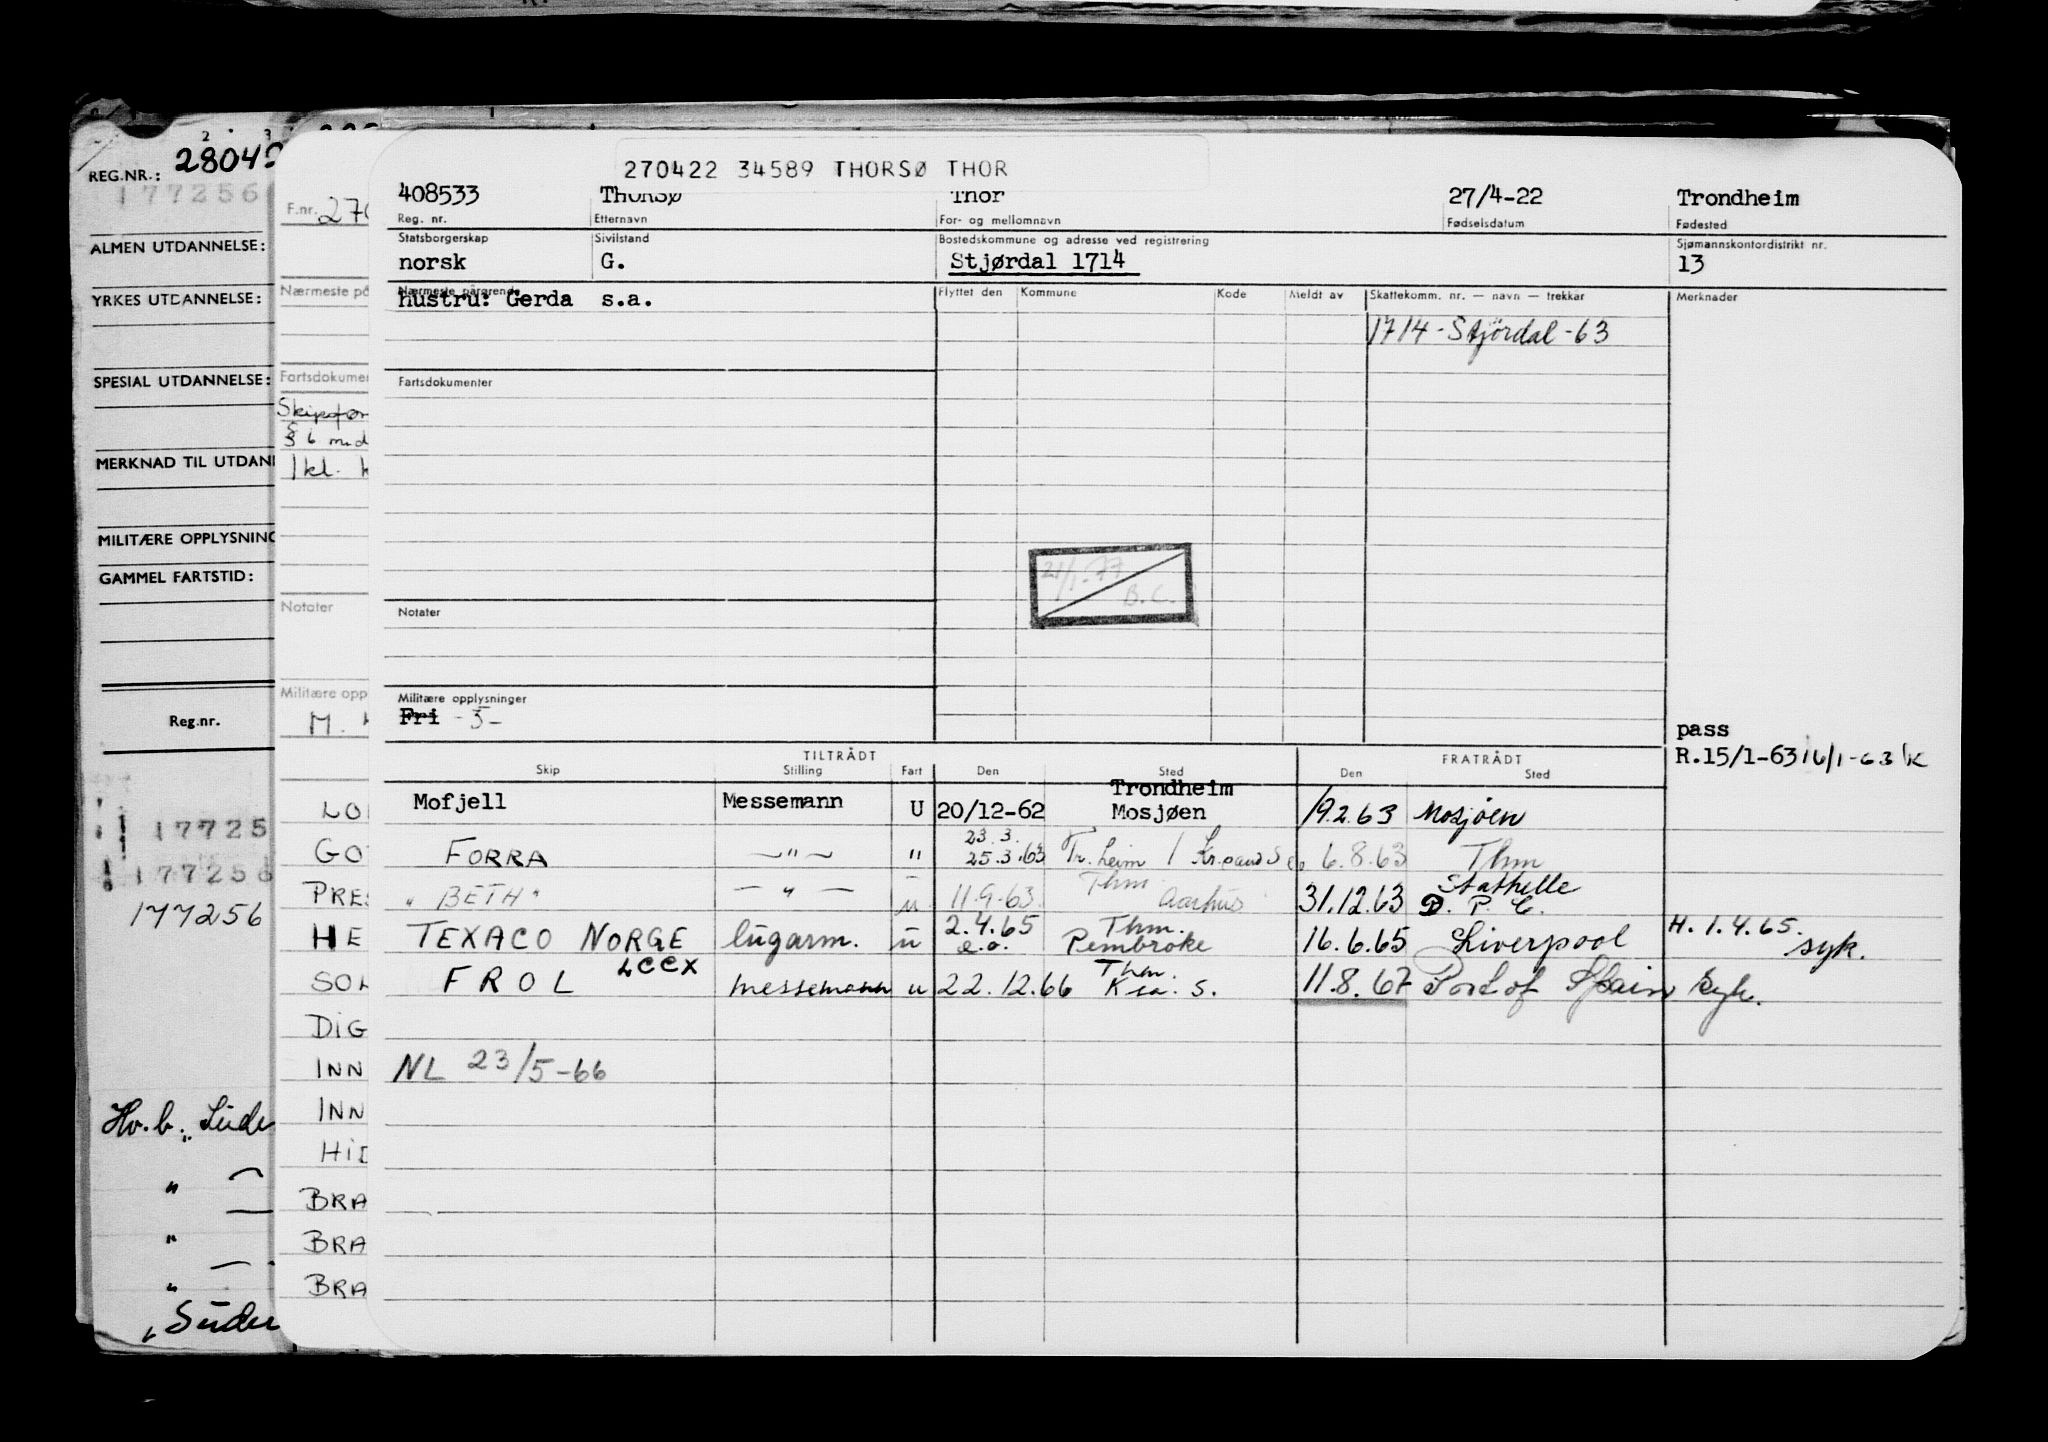 270422 34589 THORSØ THOR
408533 THORSØ Thor 27/4-22 Trondheim
Reg. nr. Etternavn For- og mellomnavn Fødselsdatum Fødested
Statsborgerskap Sivilstand Bostedskommune og adresse ved registrering Sjømannskontordistrikt nr.
norsk G. Stjørdal 1714 13
Nærmeste pårørende Flyttet den Kommune Kode Meldt av Skattekomm. nr. — navn — trekkår Merknader
hustru: Gerda s.a.
1714 - Stjördal - 63
Fartsdokumenter
21/1-77
B.C.
Notater
Militære opplysninger
Fri -5-
pass
R.15/1-63 16/1-63 K
TILTRÅDT FRATRÅDT
Skip Stilling Fart Den Sted Den Sted
Trondheim
Mofjell Messemann U 20/12-62 Mosjøen 19.2.63 Mosjöen
23.3.
FORRA —"— " 25.3.63 Tr.heim / Kr.sand S 6.8.63 Thm
Thm. Stathelle
"BETH" —"— u 11.9.63 Aarhus 31.12.63 D.P.C.
2.4.65 Thm. H. 1.4.65.
TEXACO NORGE lugarm. u e.o. Pembroke 16.6.65 Liverpool syk.
LCCX Thm.
FROL messemann u 22.12.66 Kr.a. S. 11.8.67 Port of Spain syk.
NL 23/5-66
REG.NR.: 28049
177256
ALMEN UTDANNELSE:
YRKES UTDANNELSE:
SPESIAL UTDANNELSE:
MERKNAD TIL UTDAN
MILITÆRE OPPLYSNING
GAMMEL FARTSTID:
Reg.nr.
17725
177256
177256
Hv.b. Süder
"
"
"
Süder
F.nr. 270
Nærmeste på
Fartsdokumen
Skipsfør
§ 6 m.d
1 kl. k
Notater
Militære opp
M.
LO
GO
PRES
HE
SOL
DIG
INN
INN
HID
BRA
BRA
BRA